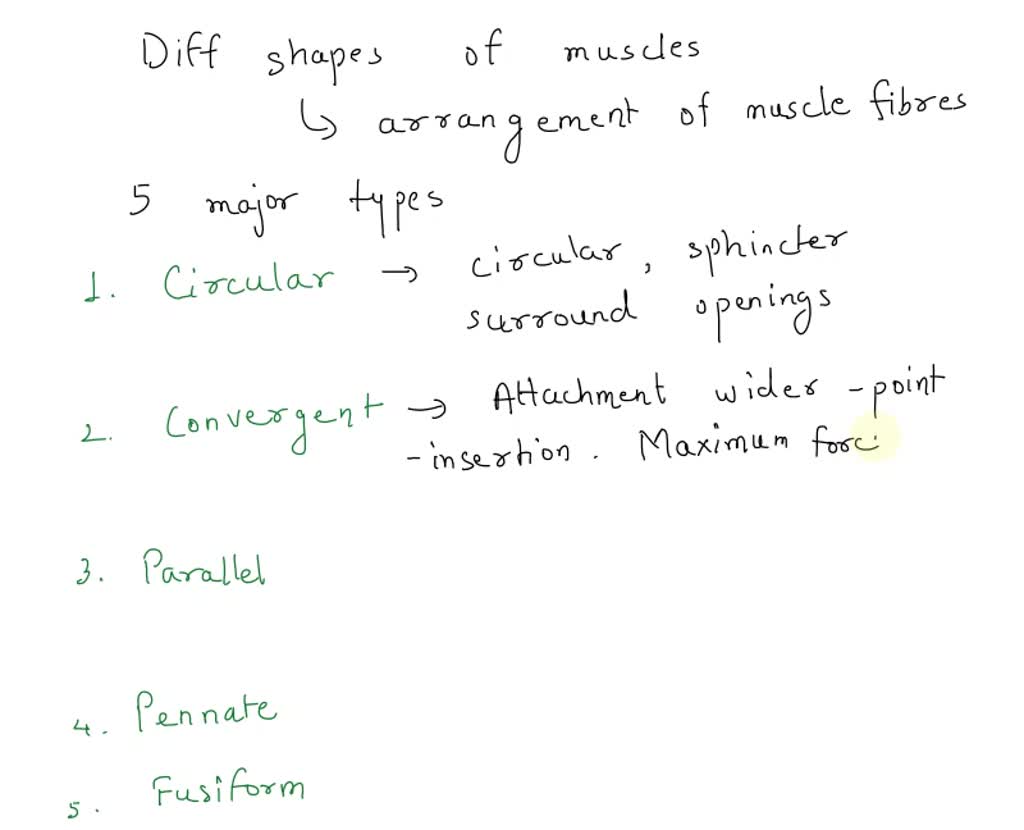 Diff shapes of muscles
↳ arrangement of muscle fibres
5 major types
1. Circular → circular, sphincter
surround openings
2. Convergent → Attachment wider - point
- insertion. Maximum forc
3. Parallel
4. Pennate
5. Fusiform